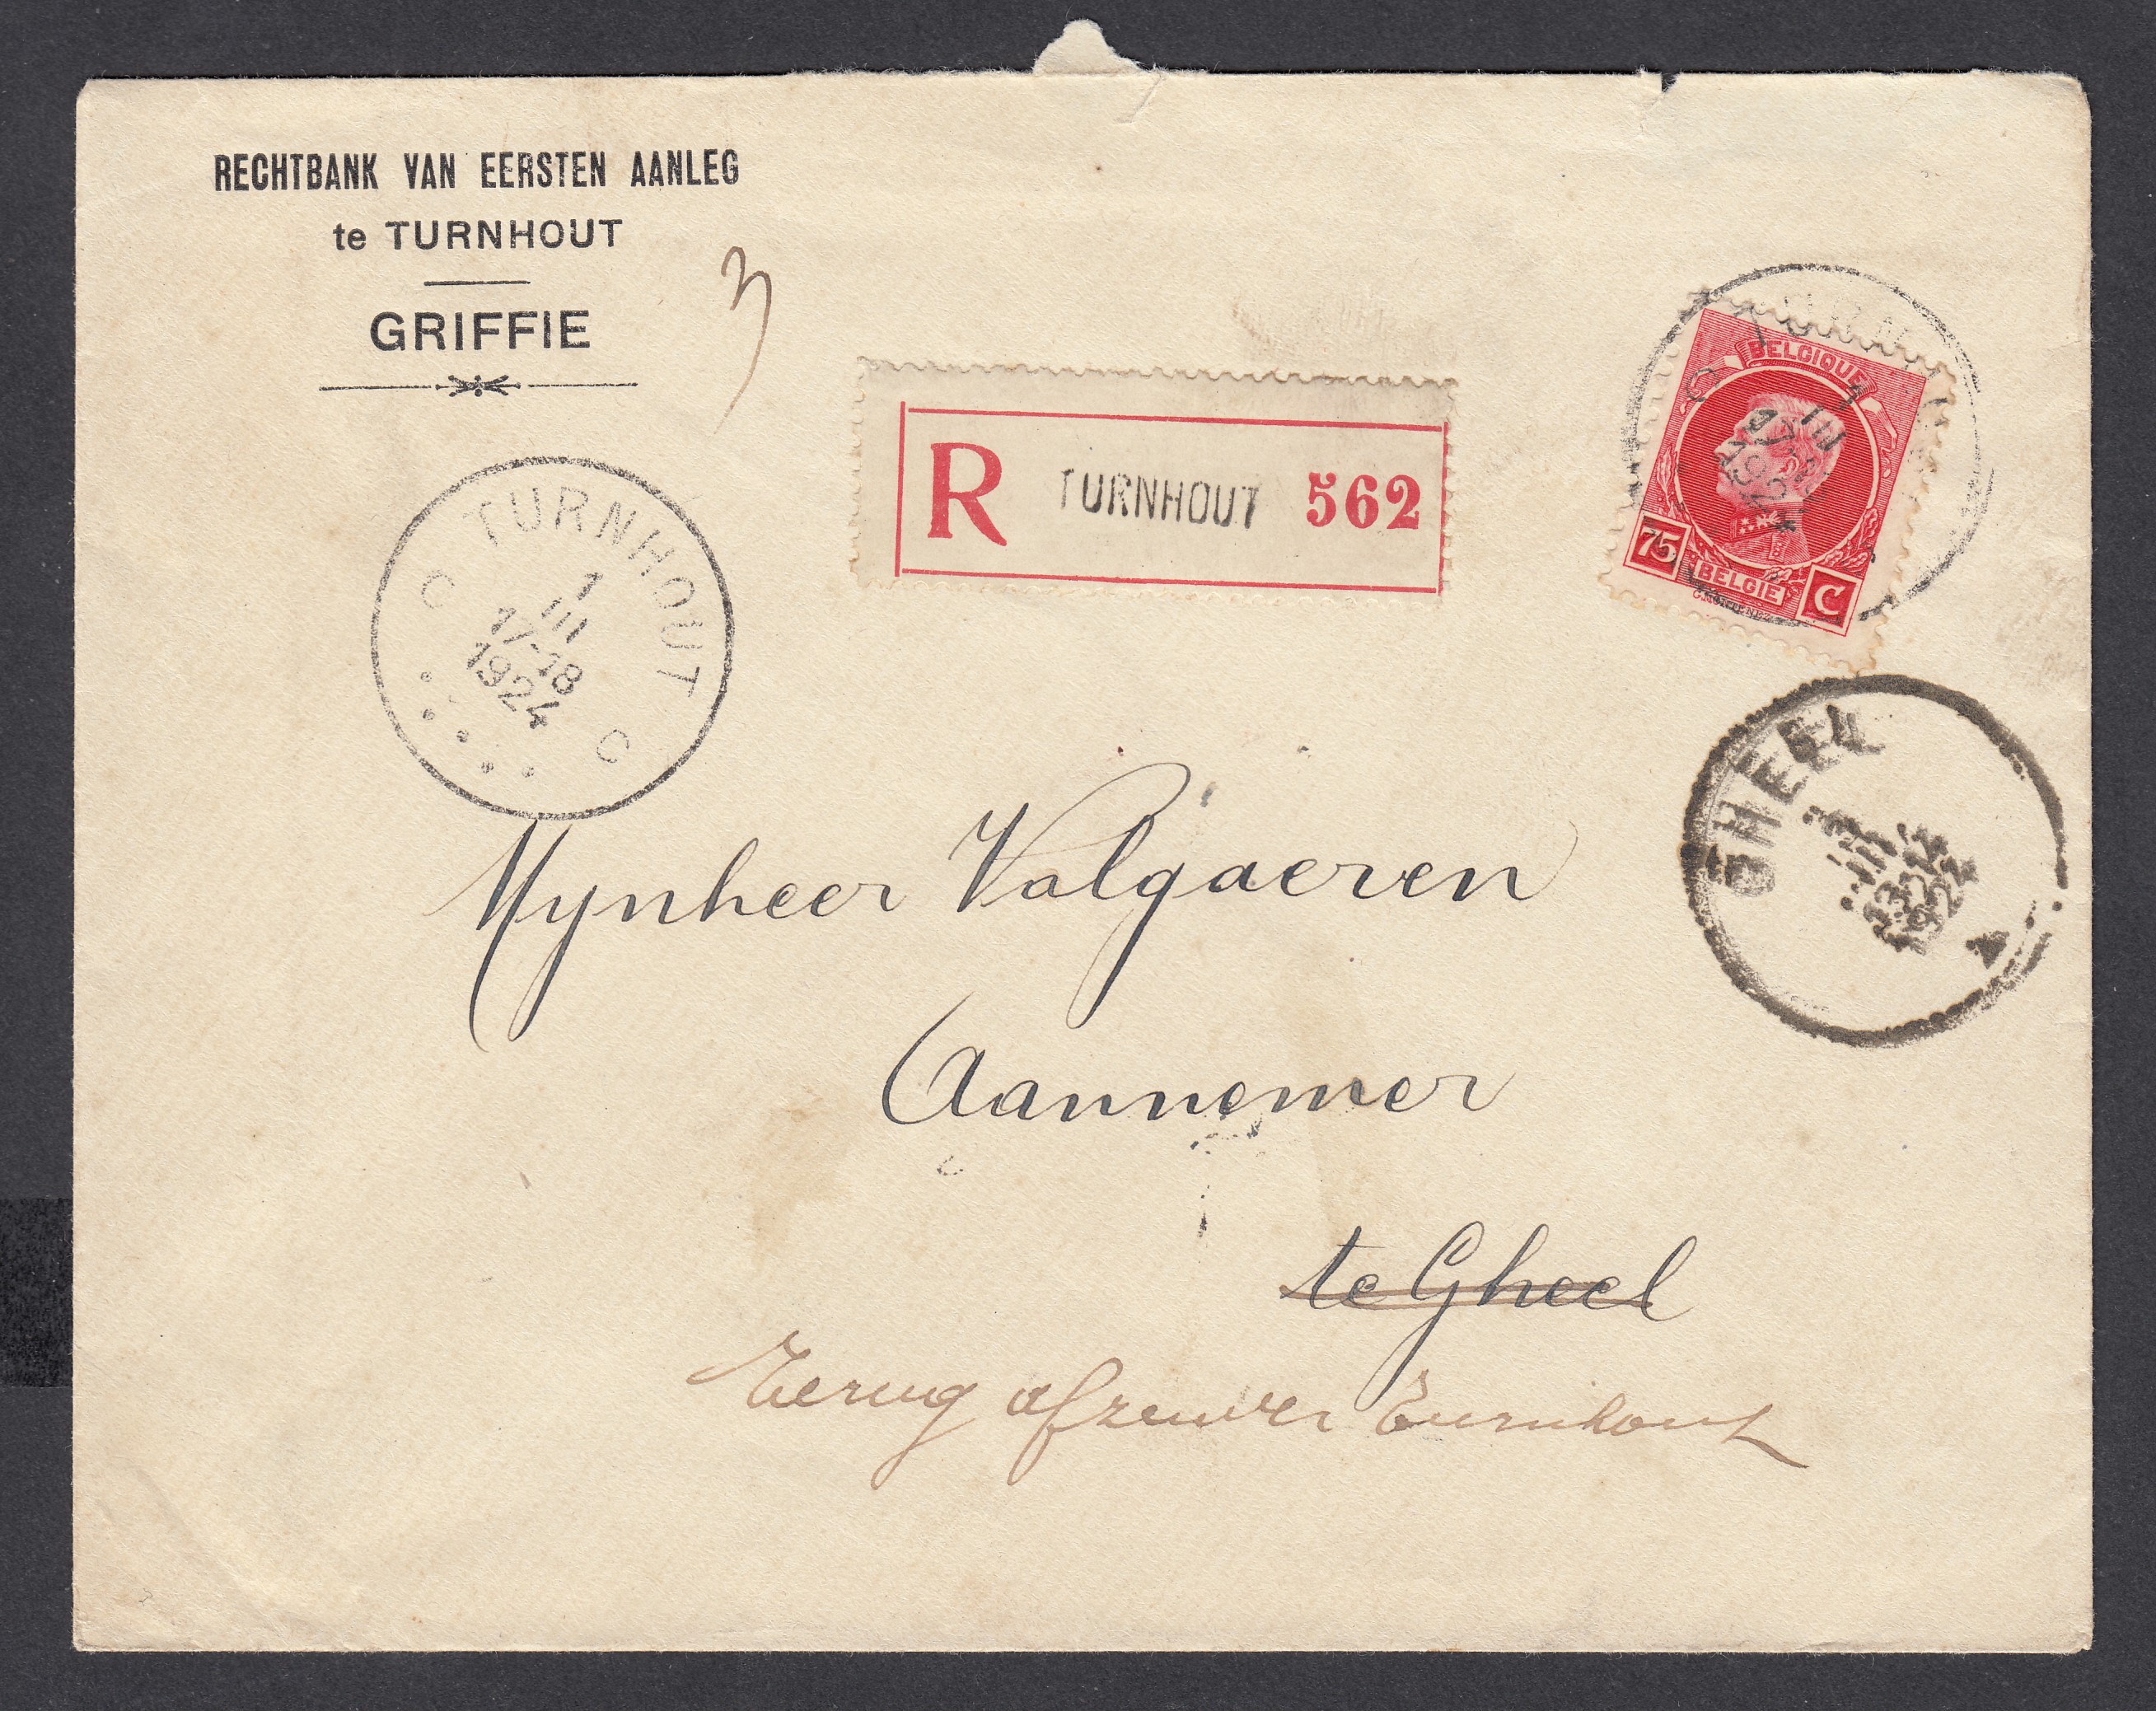 RECHTBANK VAN EERSTEN AANLEG
te TURNHOUT
GRIFFIE
R TURNHOUT 562
BELGIQUE
75 BELGIE C
TURNHOUT
1
III
17-18
1924
C C
GHEEL
1924
Mynheer Valgaeren
Aannemer
te Gheel
Terug afzender Turnhout